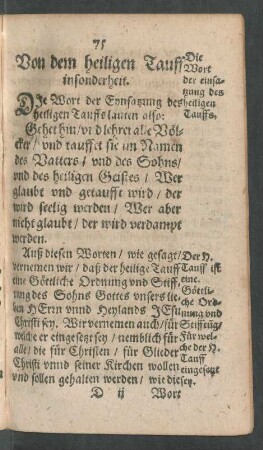 75
Von dem heiligen Tauff
insonderheit.
DJe Wort der Einsatzung des
heiligen Tauffs lauten also:
Gehet hin/ vnd lehret alle Völ-
cker/ vnd tauffet sie im Namen
des Vatters/ vnd des Sohns/
vnd des heiligen Geistes/ Wer
glaubt vnd getaufft wird/ der
wird seelig werden/ Wer aber
nicht glaubt/ der wird verdampt
werden.
Auß diesen Worten/ wie gesagt/
vernemen wir/ daß der heilige Tauff
eine Göttliche Ordnung vnd Stiff-
tung des Sohns Gottes vnsers lie-
ben HErrn vnnd Heylands JEsu
Christi sey. Wir vernemen auch/ für
welche er eingesetzt sey/ nemblich für
alle/ die für Christen/ für Glieder
Christi vnnd seiner Kirchen wollen
vnd sollen gehalten werden/ wie diese
D ij Wort
Die
Wort
der einsa-
tzung des
heiligen
Tauffs.
Der H.
Tauff ist
eine
Göttli-
che Ord-
nung vnd
Stifftug/
Für wel-
che der H.
Tauff
eingesetzt
sey.